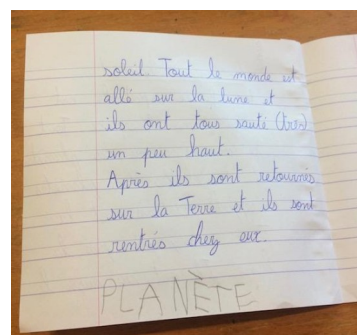 soleil. Tout le monde est
allé sur la lune et
ils ont tous sauté (très)
un peu haut.
Après ils sont retournés
sur la Terre et ils sont
rentrés chez eux.
PLANÈTE